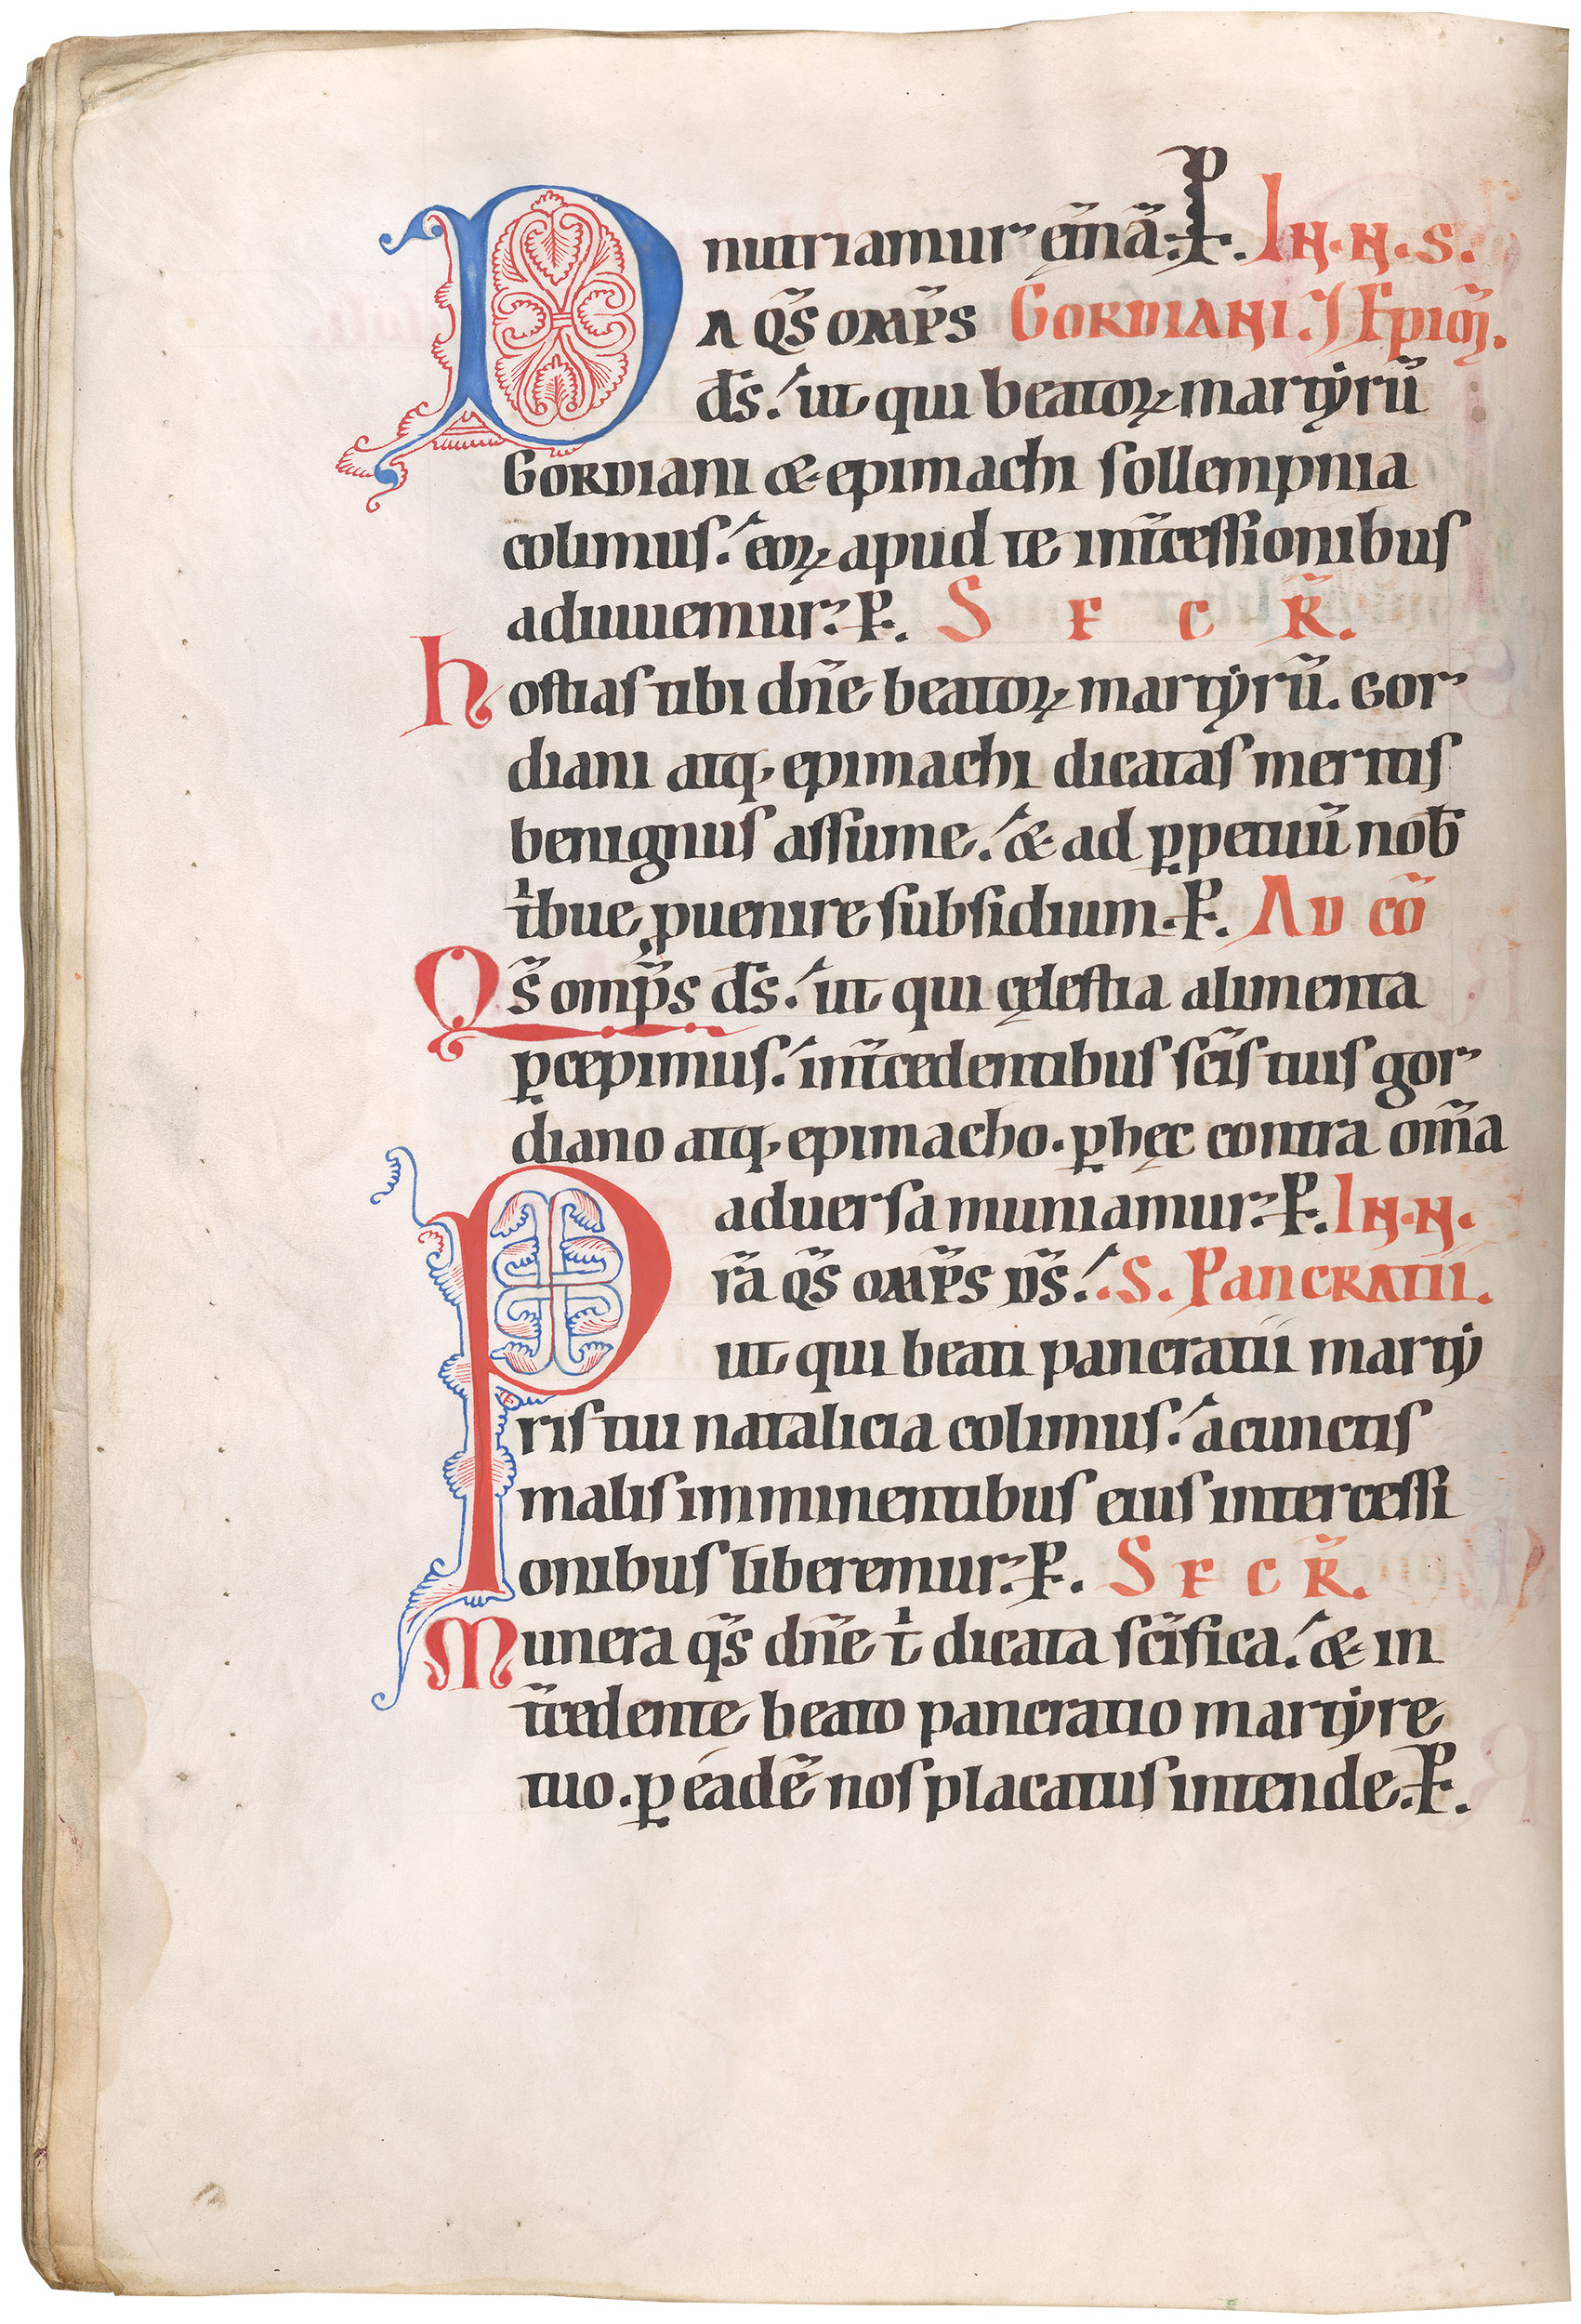 nutriamur et̄nā. P. IN. N. S.
DA q̄s om̄ps GORDIANI. ⁊ Epim̄.
d̄s. ut qui beatoꝝ martẏrū
Gordiani & epimachi sollempnia
colimus. eoꝝ apud te int̄cessionibus
adiuuemur. P. S F C R̄.
hostias tibi dn̄e beatoꝝ martẏrū. Gor
diani atq; epimachi dicatas meritis
benignus assume. & ad ꝑpetuū nob̄
tⁱbue ꝓuenire subsidium. P. AD CŌ
Qs̄ om̄ps d̄s. ut qui cęlestia alimenta
ꝑcepimus. int̄cedentibus sc̄is tuis gor
diano atq; epimacho. ꝑ hęc contra om̄a
aduersa muniamur. P. IN. N.
Pr̄a q̄s om̄ps d̄s. S. PANCRATII.
ut qui beati pancratii martẏ
ris tui natalicia colimus. a cunctis
malis imminentibus eius intercessi
onibus liberemur. P. S F C R̄.
Munera q̄s dn̄e tⁱ dicata sc̄ifica. & in
t̄cedente beato pancratio martẏre
tuo. ꝑ eadē nos placatus intende. P.